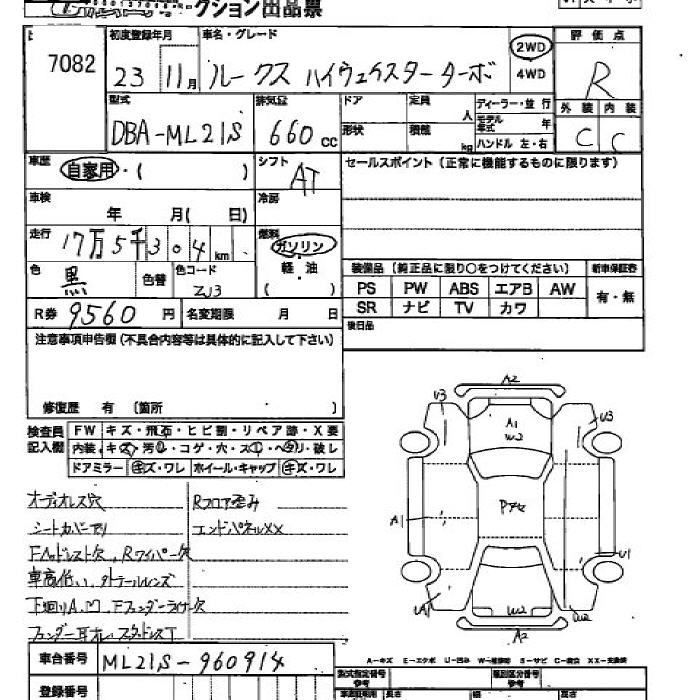 クション出品票
7082
初度登録年月 車名・グレード 評価点
23 11月 ルークス ハイウェイスター ターボ 2WD 4WD R
型式 排気量 ドア 定員 人 ディーラー・並行 外装 内装
DBA-ML21S 660cc 形状 積載 kg モデル年式 年 ハンドル 左・右 C C
車歴 自家用・( ) シフト AT セールスポイント(正常に機能するものに限ります)
車検 年 月( 日) 冷房
走行 17万5千304km 燃料 ガソリン 軽・油 ( )
色 黒 色替 色コード ZJ3
装備品(純正品に限り○をつけてください) 新車保証書
PS PW ABS エアB AW 有・無
SR ナビ TV カワ
R券 9560円 名変期限 月 日 後日品
注意事項申告欄(不具合内容等は具体的に記入して下さい)
修復歴 有(箇所 )
検査員記入欄 FW キズ・飛石・ヒビ割・リペア跡・X要
内装 キズ・汚レ・コゲ・穴・スレ・ヘタリ・破レ
ドアミラー キズ・ワレ ホイール・キャップ キズ・ワレ
オーディオレス穴 Rフロア歪み
シートカバーアリ エンドパネルXX
Fヘッドレスト欠、Rワイパー欠
車高低い、外テールレンズ
下廻りA.M、Fフェンダーライナー欠
フェンダー耳オレ
A2
U3 A1 W2 U3
A1 Pアセ U1
UA1 W2 W2
A2
車台番号 ML21S-960914
A-キズ E-エクボ U-凹み W-補修跡 S-サビ C-腐食 XX-交換済
型式指定番号 類別区分番号
登録番号 参考 長さ 幅 高さ